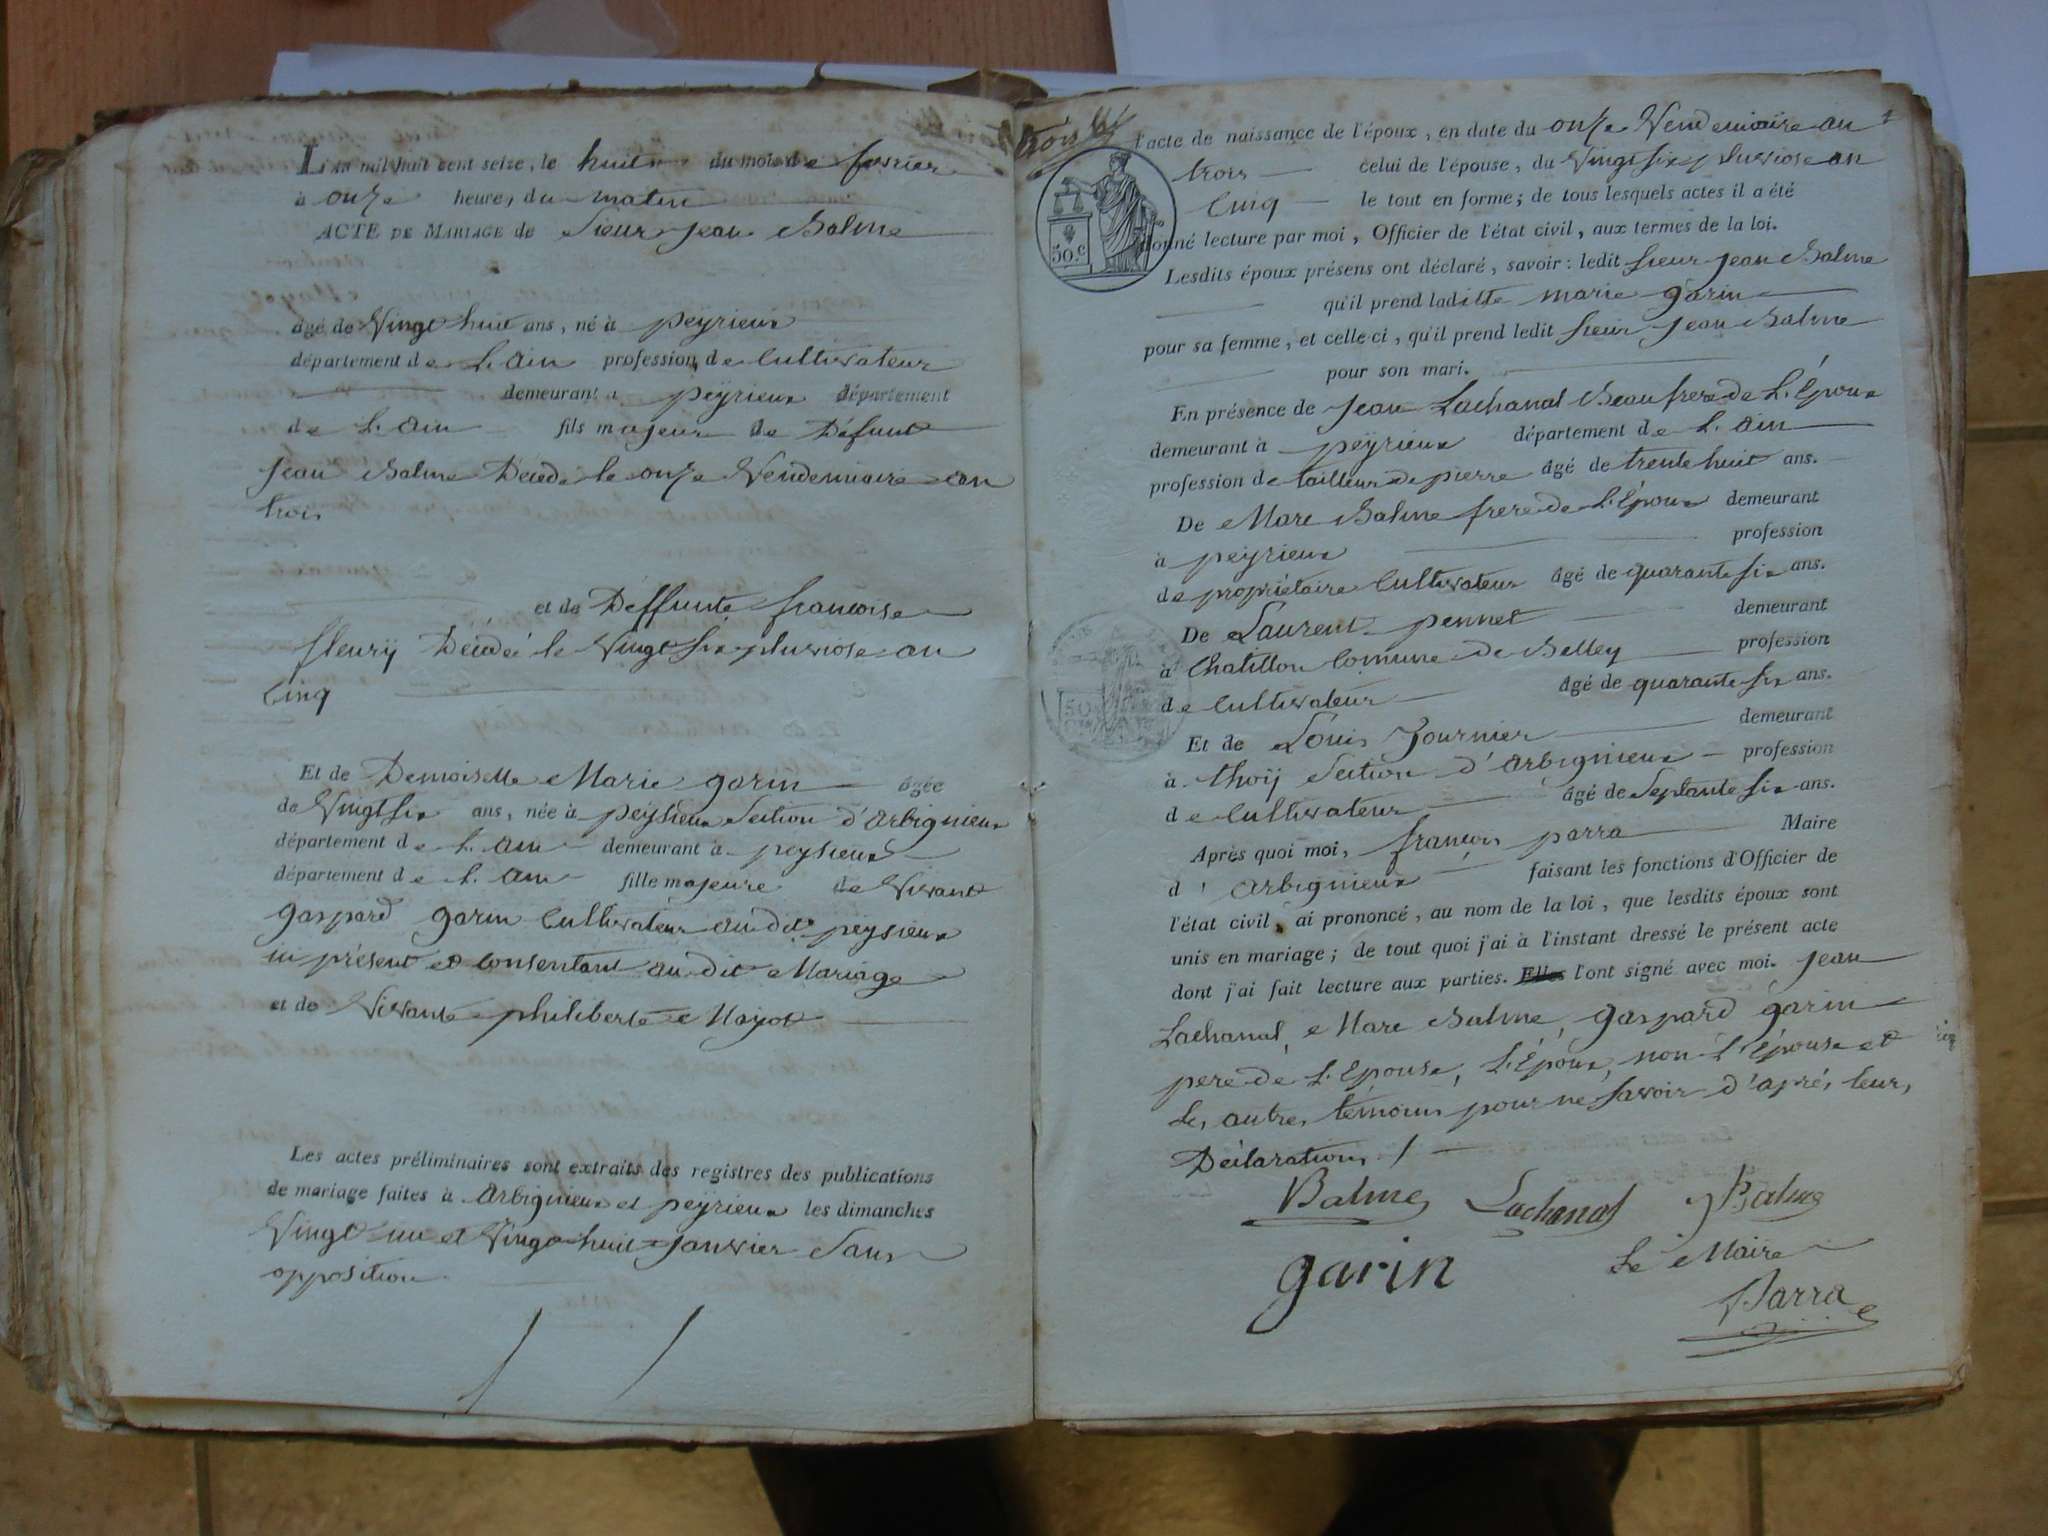 L'an mil huit cent seize, le huit du mois de fevrier
à onze heure, du matin
ACTE DE MARIAGE de Sieur Jean Balme
âgé de Vingt huit ans, né à peÿrieux
département de L'ain profession de Cultivateur
demeurant à peÿrieux département
de L'ain fils majeur de Défunt
Jean Balme Décédé le onze Vendemiaire an
trois
et de Déffunte francoise
fleurÿ Décédée le Vingt six pluviose an
Cinq
Et de Demoiselle Marie garin âgée
de Vingt six ans, née à peysieux Section d'arbignieux
département de L'ain demeurant à peysieux
département de L'ain fille majeure de Vivant
gaspard garin Cultivateur audit peysieux
ici présent et consentant au dit Mariage
et de Vivante philiberte Mayot
Les actes préliminaires sont extraits des registres des publications
de mariage faites à arbignieux et peÿrieux les dimanches
Vingt un et Vingt huit janvier Sans
opposition
trois
50.c
l'acte de naissance de l'époux, en date du onze Vendemiaire an
trois celui de l'épouse, du Vingt six pluviose an
Cinq le tout en forme; de tous lesquels actes il a été
donné lecture par moi, Officier de l'état civil, aux termes de la loi.
Lesdits époux présens ont déclaré, savoir: ledit sieur Jean Balme
qu'il prend laditte marie garin
pour sa femme, et celle ci, qu'il prend ledit sieur Jean Balme
pour son mari.
En présence de Jean Lachanal Beaufrere de L'Époux
demeurant à peÿrieux département de L'ain
profession de tailleur de pierre âgé de trente huit ans.
De Marc Balme frere de L'Époux demeurant
à peÿrieux profession
de propriétaire Cultivateur âgé de quarante six ans.
De Laurent pennet demeurant
à Chatillon Comune de Belley profession
de Cultivateur âgé de quarante six ans.
Et de Louis Journier demeurant
à thoÿ Section d'arbignieux profession
de Cultivateur âgé de Septante six ans.
Après quoi moi, françois parra Maire
d'arbignieux faisant les fonctions d'Officier de
l'état civil, ai prononcé, au nom de la loi, que lesdits époux sont
unis en mariage; de tout quoi j'ai à l'instant dressé le présent acte
dont j'ai fait lecture aux parties. Elles l'ont signé avec moi. Jean
Lachanal, Marc Balme, gaspard garin
pere de L'Épouse, L'Époux, non L'Épouse et
Les autres témoins pour ne savoir d'aprés leurs
Déclarations /
Balme Lachanal J Balme
garin Le Maire
Parra